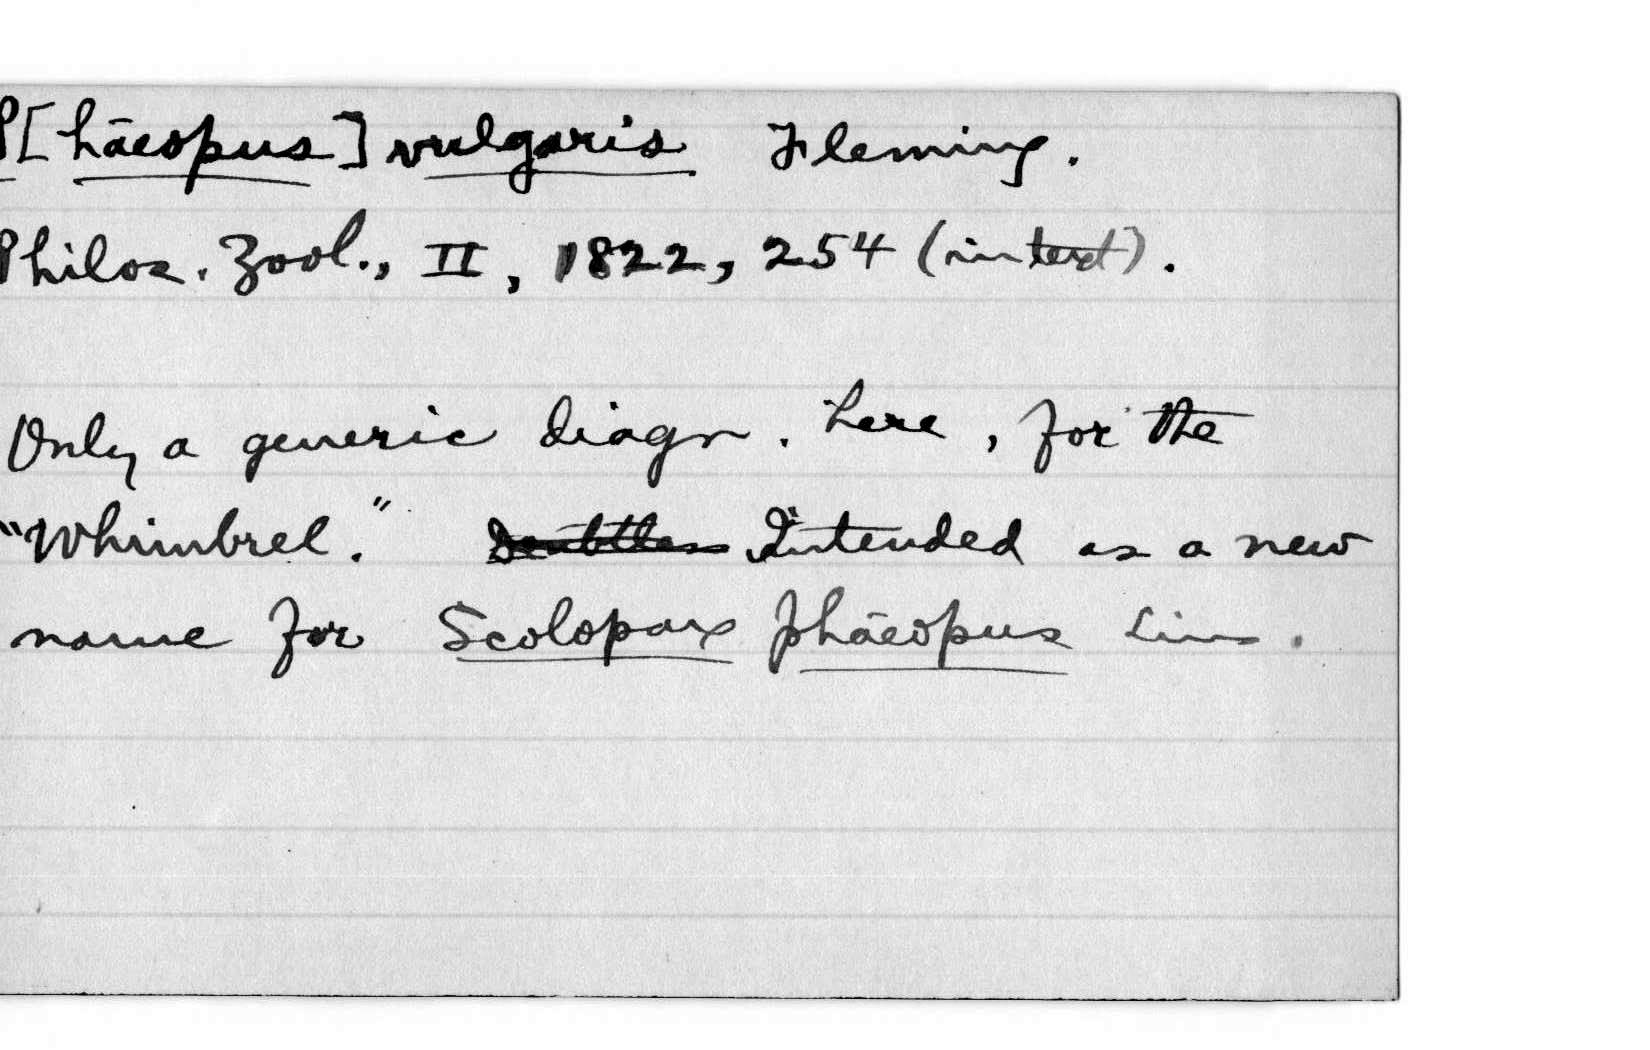 P[hāeopus] vulgaris Fleming.
Philos. Zool., II, 1822, 254 (in text).
Only a generic diagn. here, for the
"Whimbrel." ~~Doubtless~~ Intended as a new
name for Scolopax phāeopus Linn.